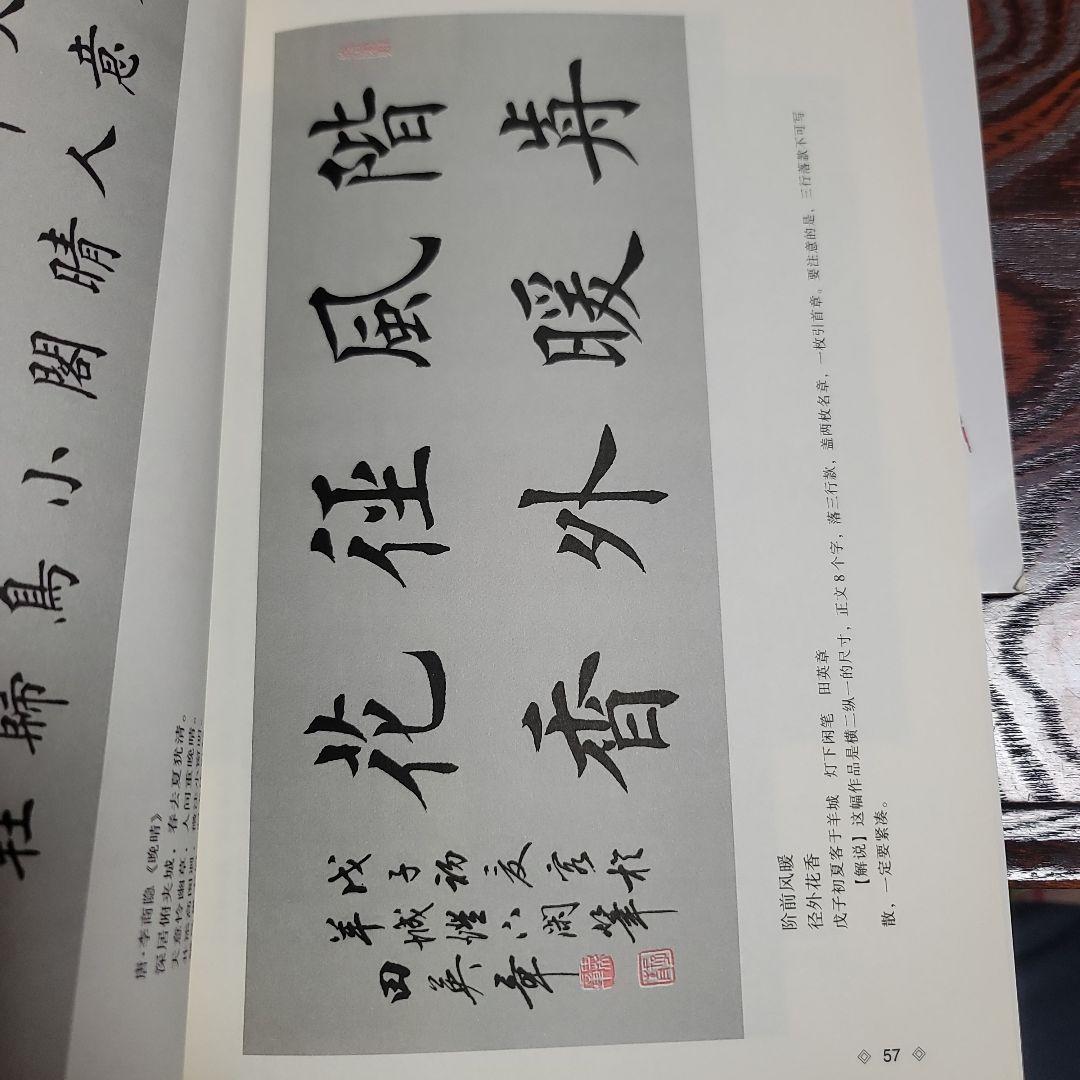 意
人
晴
閣
小
鳥
歸
唐·李商隐《晚晴》
深居俯夹城，春去夏犹清。
天意怜幽草，人间重晚晴。
階歬
風暖
徑外
花香
戊子初夏客於
羊城燈下閑筆
田英章
阶前风暖
径外花香
戊子初夏客于羊城 灯下闲笔 田英章
【解说】这幅作品是横二纵一的尺寸，正文8个字，落三行款，盖两枚名章，一枚引首章。要注意的是，三行落款不可写
散，一定要紧凑。
57